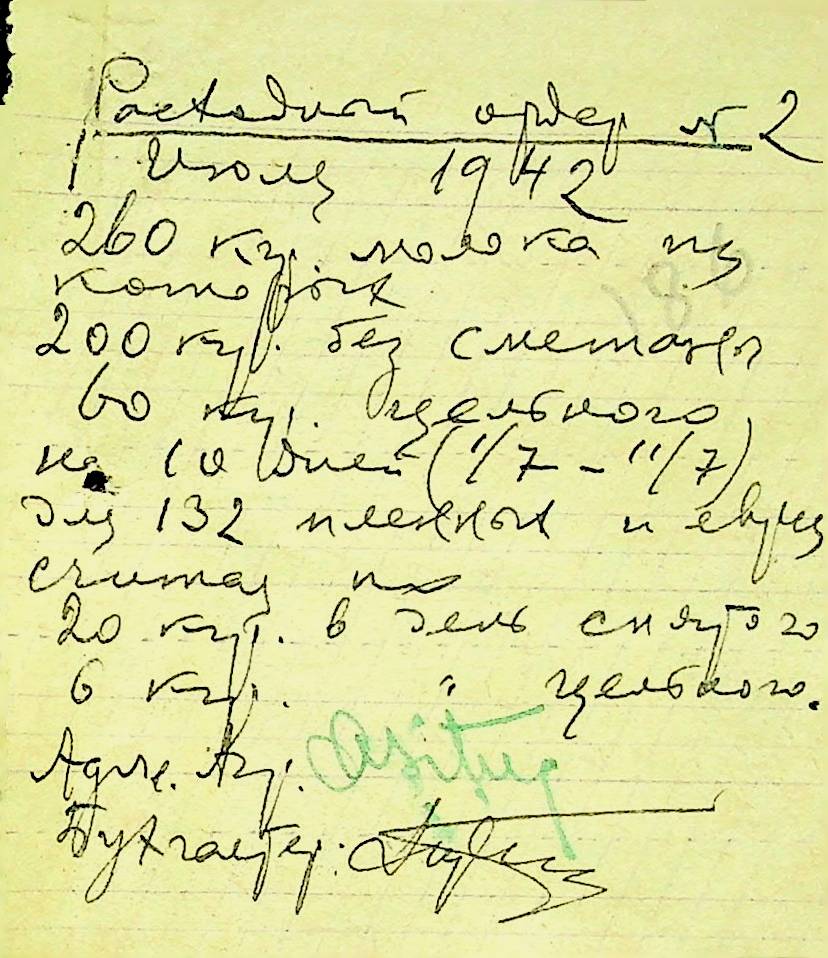 Расходный ордер № 2
1 Июля 1942
260 кгр. молока из
которых
200 кгр. без сметаны
60 кгр. цельного
на 10 дней (1/7 – 11/7)
для 132 пленных и
считая по
20 кгр. в день снятого
6 кгр. " цельного.
Адм. Агр.
Бухгалтер: